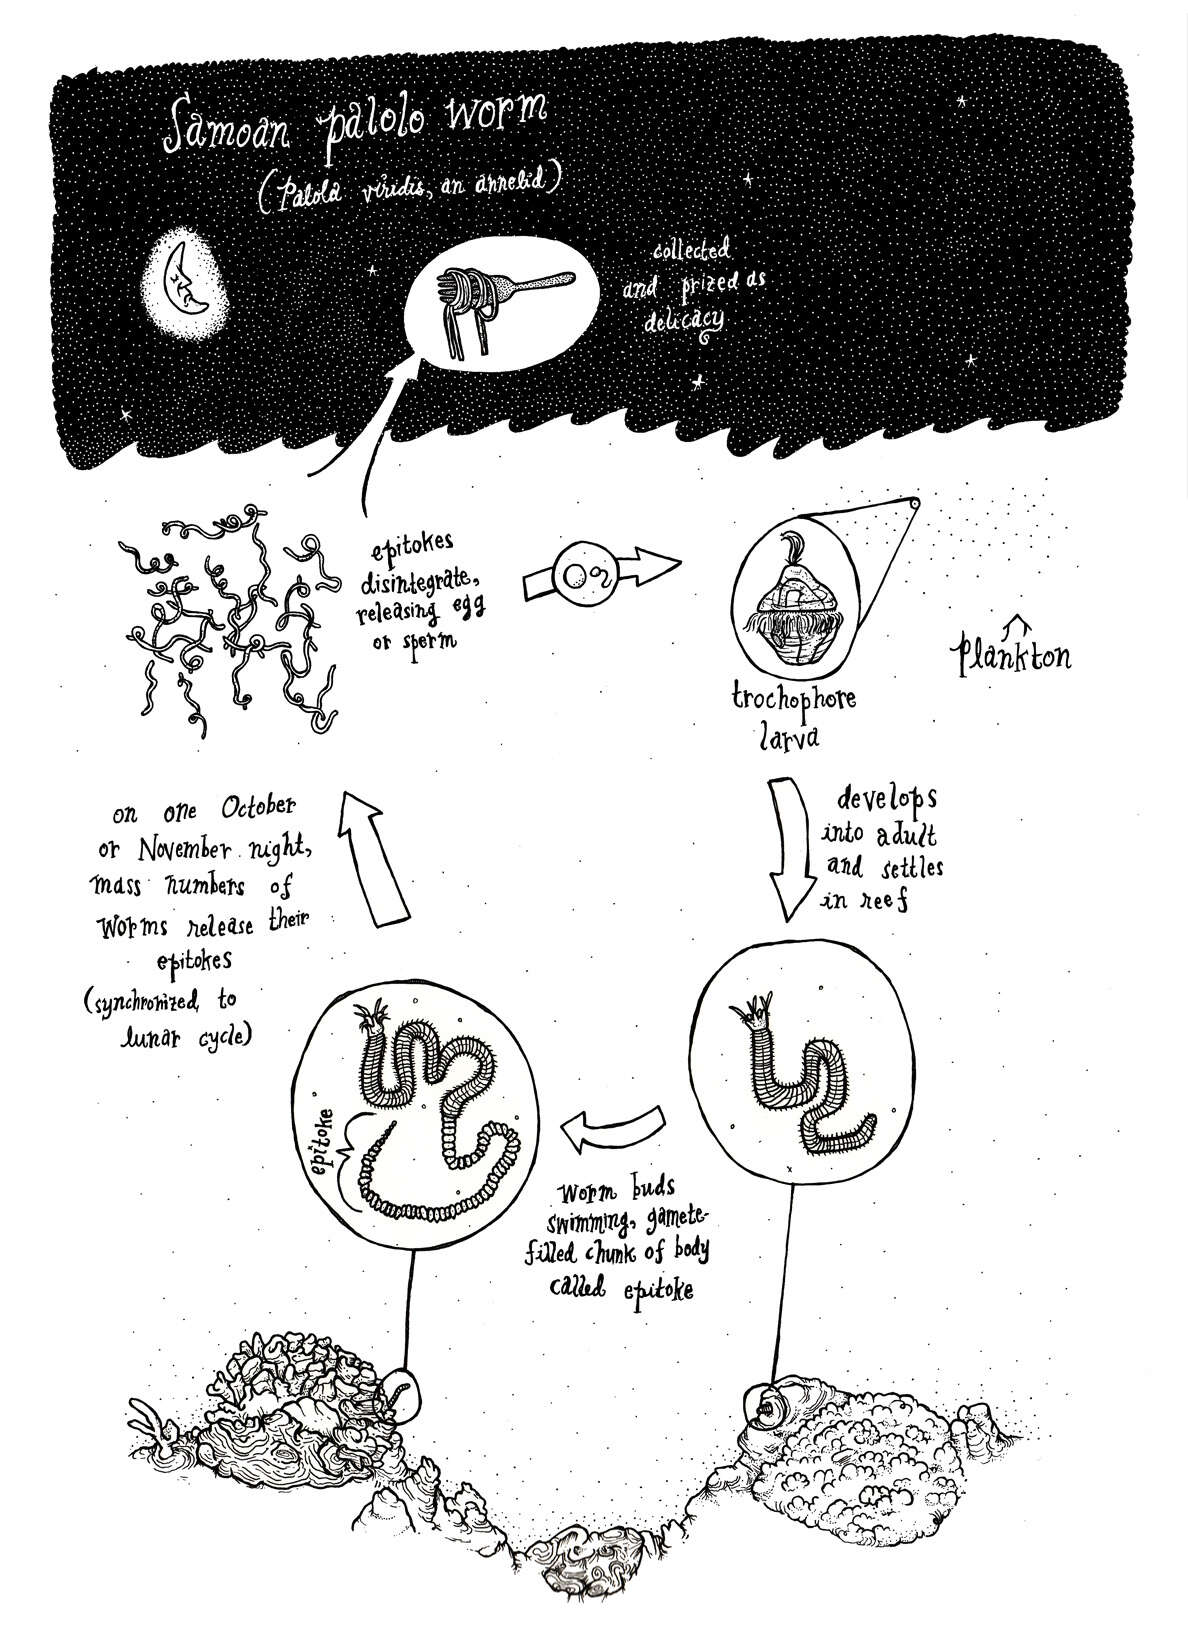 Samoan palolo worm
(Palola viridis, an annelid)
collected
and prized as
delicacy
epitokes
disintegrate,
releasing egg
or sperm
plankton
trochophore
larva
develops
into adult
and settles
in reef
on one October
or November night,
mass numbers of
worms release their
epitokes
(synchronized to
lunar cycle)
epitoke
worm buds
swimming, gamete-
filled chunk of body
called epitoke